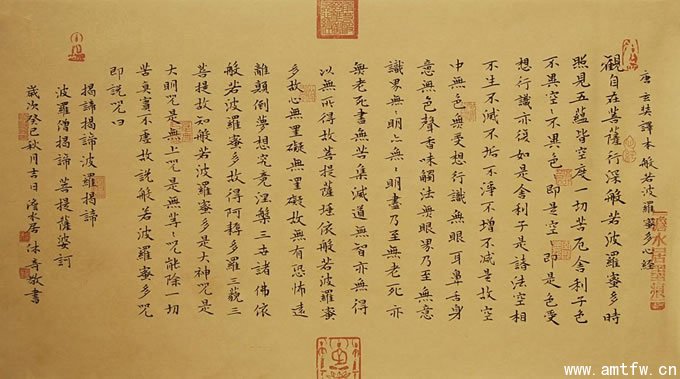 唐玄奘譯本般若波羅蜜多心經
觀自在菩薩行深般若波羅蜜多時
照見五蘊皆空度一切苦厄舍利子色
不異空〻不異色〻即是空〻即是色受
想行識亦復如是舍利子是諸法空相
不生不滅不垢不淨不增不減是故空
中無色無受想行識無眼耳鼻舌身
意無色聲香味觸法無眼界乃至無意
識界無〻明亦無〻明盡乃至無老死亦
無老死盡無苦集滅道無智亦無得
以無所得故菩提薩埵依般若波羅蜜
多故心無罣礙無罣礙故無有恐怖遠
離顛倒夢想究竟涅槃三世諸佛依
般若波羅蜜多故得阿耨多羅三藐三
菩提故知般若波羅蜜多是大神咒是
大明咒是無上咒是無等〻咒能除一切
苦真實不虛故說般若波羅蜜多咒
即說咒曰
揭諦揭諦波羅揭諦
波羅僧揭諦菩提薩婆訶
歲次癸巳秋月吉日水居沐手敬書
www.amtfw.cn